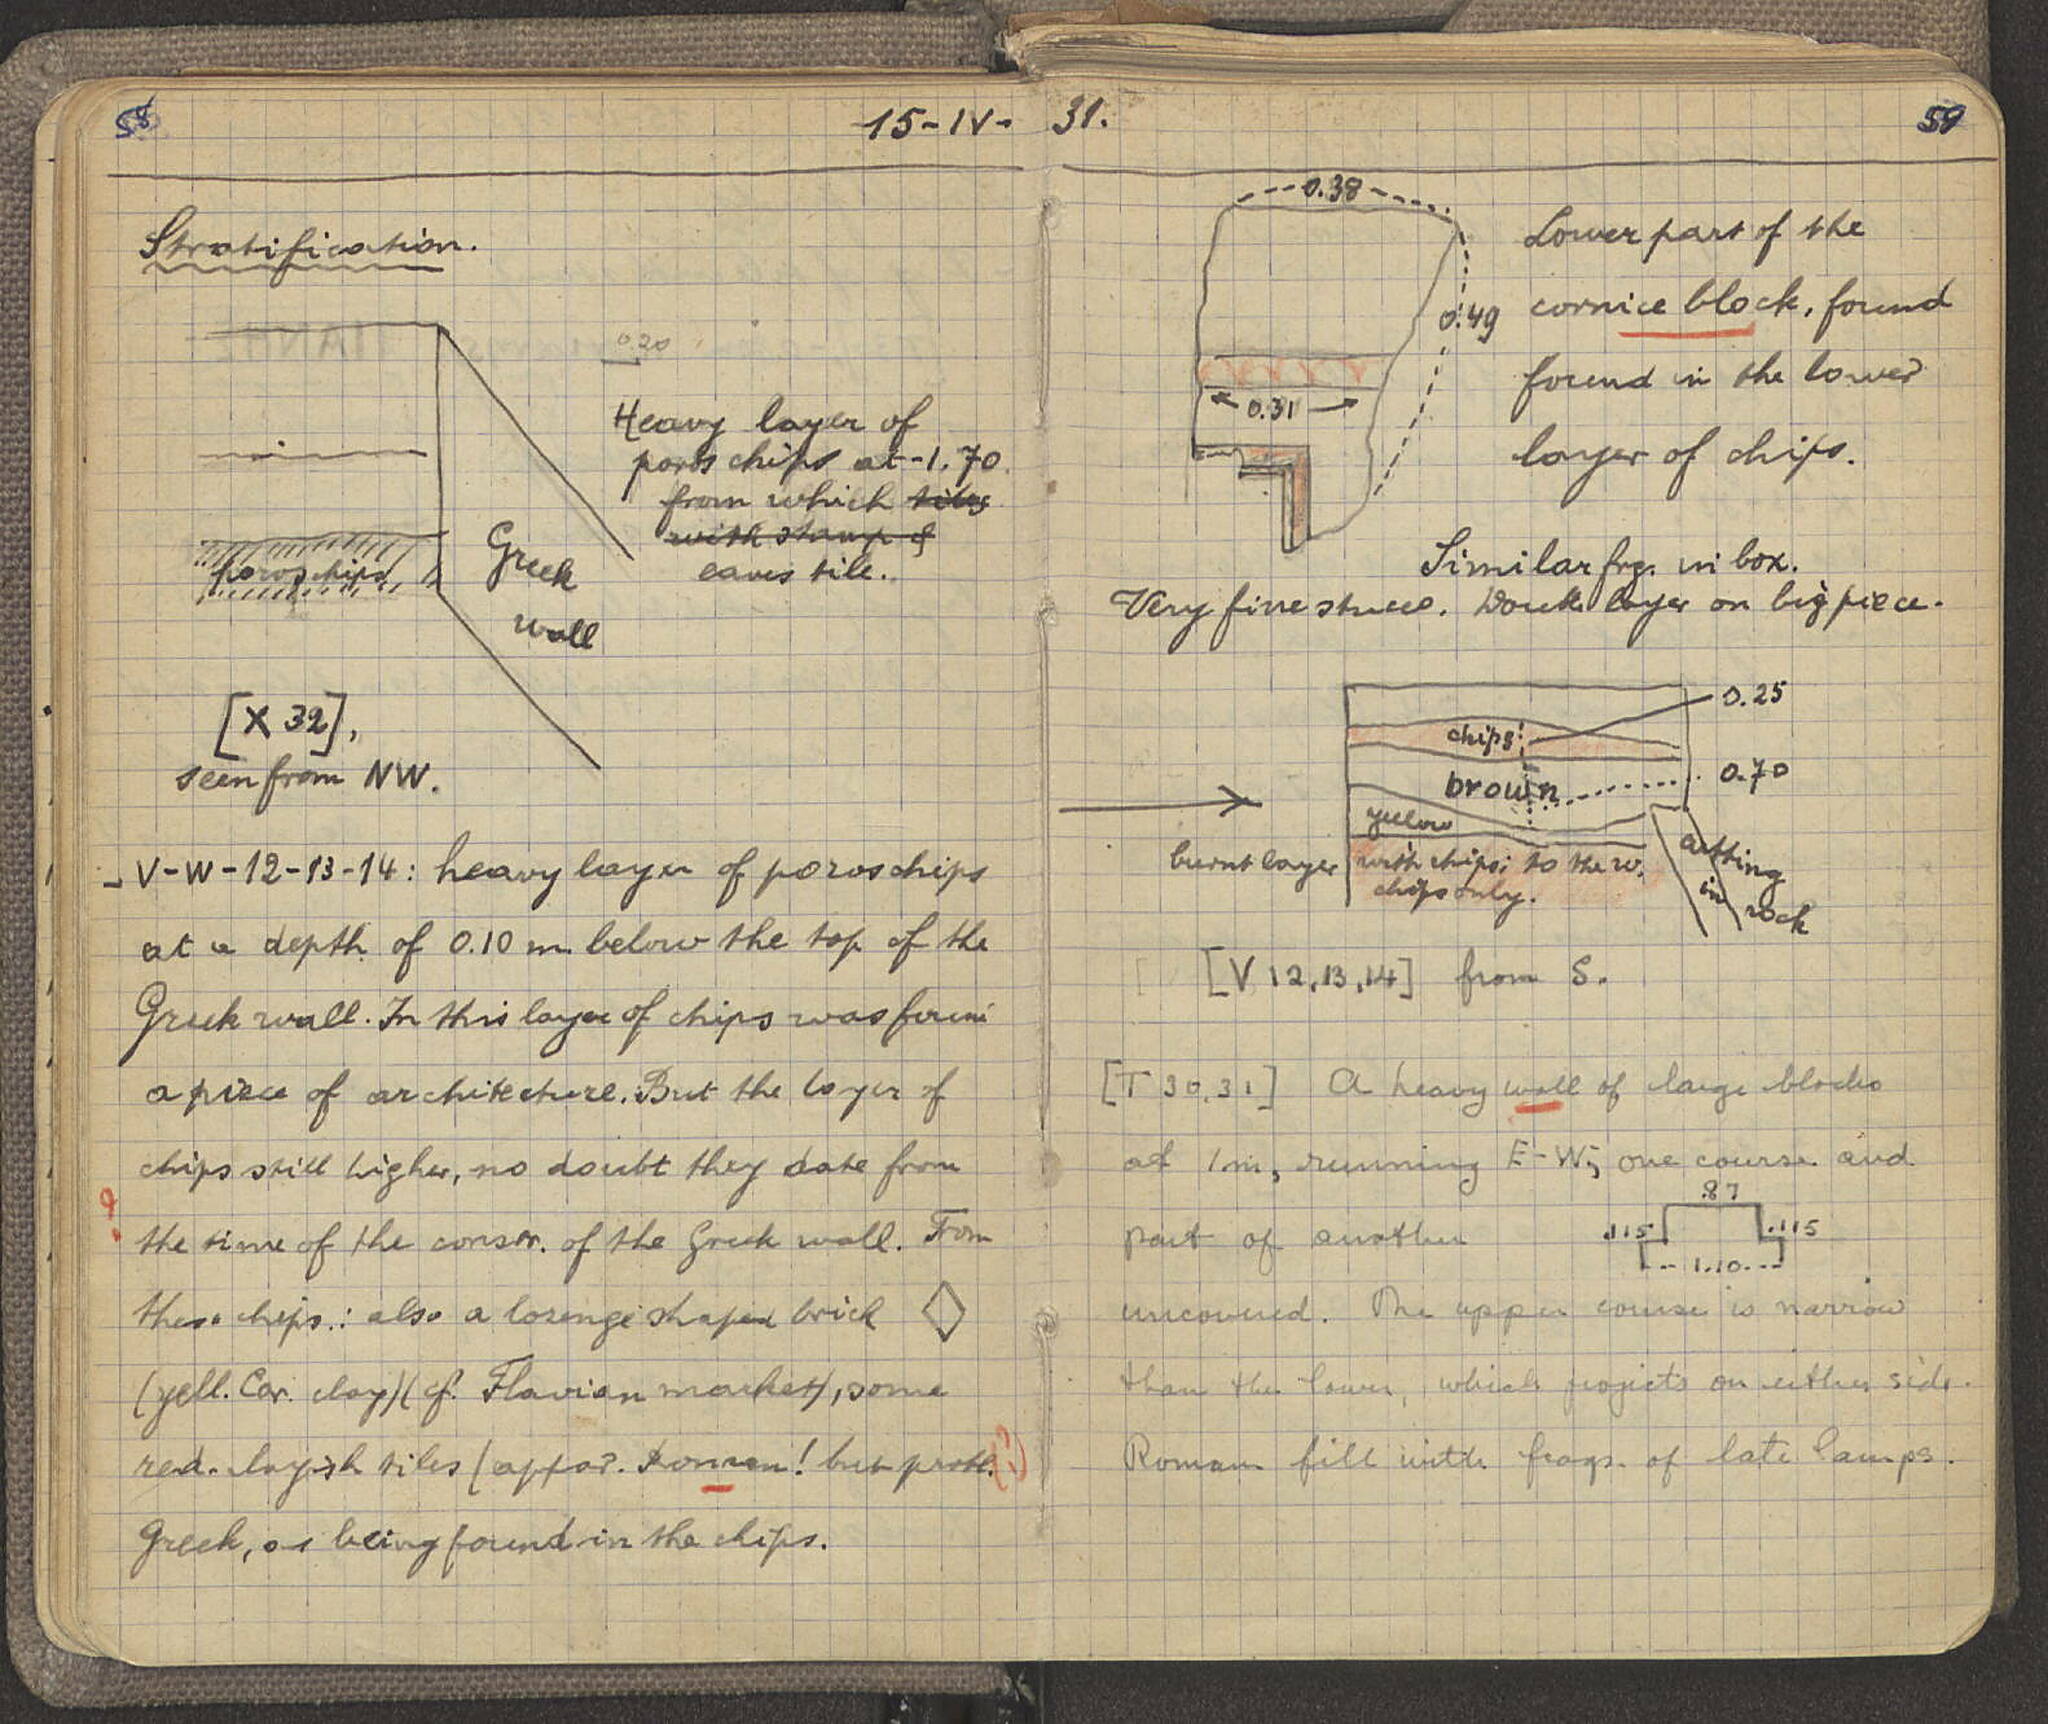 58
15-IV-
Stratification.
0.20
Heavy layer of
poros chips at -1.70
from which tiles
with stamp of
eaves tile.
poros chips
Greek
wall
[X 32],
seen from NW.
- V-W-12-13-14: heavy layer of poros chips
at a depth of 0.10 m. below the top of the
Greek wall. In this layer of chips was found
a piece of architecture. But the layer of
chips still higher, no doubt they date from
the time of the constr. of the Greek wall. From
these chips: also a lozenge shaped brick
(yell. Cor. clay) (cf. Flavian market), some
red. clayish tiles (appar. Roman! but prob.
Greek, as being found in the chips.
31.
59
0.38
0.49
0.31
Lower part of the
cornice block, found
found in the lower
layer of chips.
Similar frg. in box.
Very fine stucc. Double layer on big piece.
chips
0.25
brown
0.70
yellow
burnt layer with chips; to the W.
chips only.
cutting
in rock
[V 12,13,14] from S.
[T 30,31] A heavy wall of large blocks
at 1m, running E-W; one course and
part of another
.87
.115 .115
1.10
uncovered. The upper course is narrow
than the lower, which projects on either side.
Roman fill with frags. of late lamps.